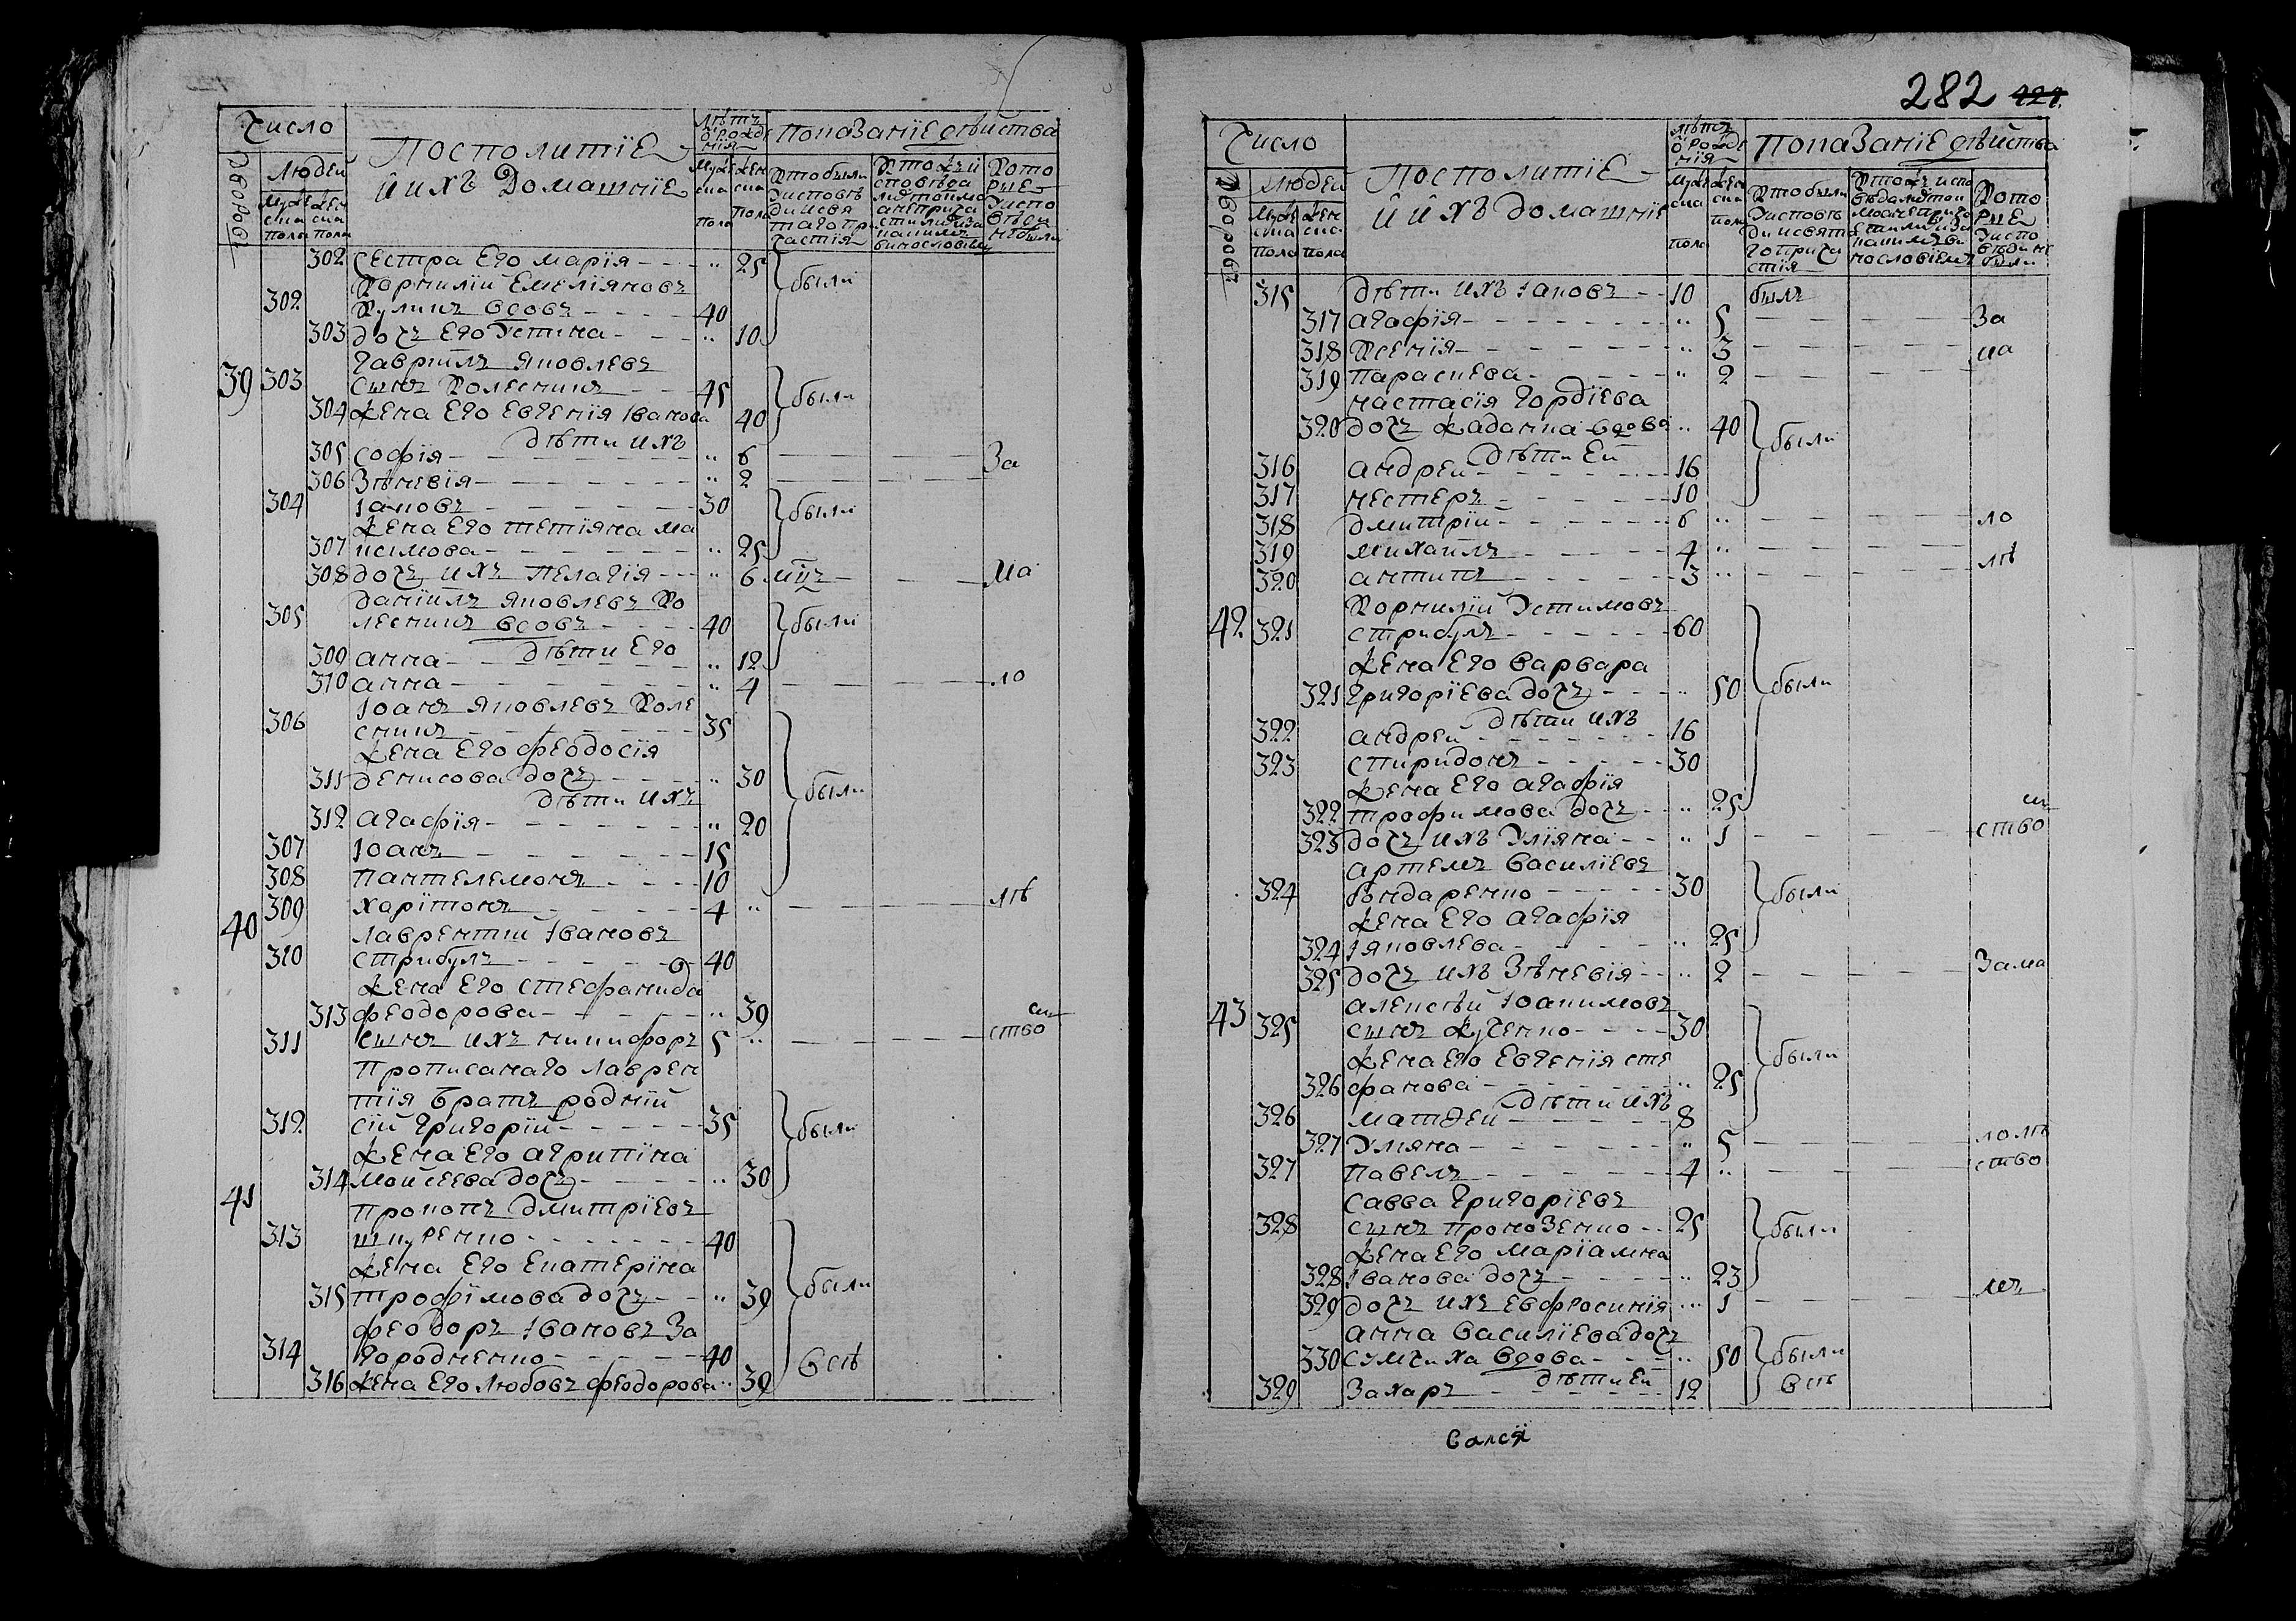 Число
Посполитїе
Лѣтъ
ѿ рожде
нїя
Показанїе дѣйства
Дворовъ
Людей
й ихъ домашнїе
Муже
ска
пола
Жен
ска
пола
Муже
ска
пола
Жен
ска
пола
Кто были
Кото
рые
302 Сестра его Марїя - - - " 25 были
Корнилїй Емелїановъ
302 Куликъ вдовъ - - - - 40
303 дочъ его Устина - - - " 10
Гаврїилъ Яковлевъ
39 303 сынъ Колесникъ - - 45 были
304 Жена его Евгенїя Іванова 40
дѣти ихъ
305 Софїя - - - - - " 6 - - - за
306 Зѣновїя - - - - - " 2 - - -
304 Іаковъ - - - - - 30 были
Жена его Тетїяна Ма
307 ксимова - - - - - " 25
308 дочъ ихъ Пелагїя - - - " 6 - - - ма
Данїилъ Яковлевъ Ко
305 лесникъ вдовъ - - - - 40 были
дѣти его
309 Анна - - - - - " 12
310 Анна - - - - - " 4 - - - ло
Іоанъ Яковлевъ Коле
306 сникъ - - - - - 35
Жена его Феодосїя
311 Денисова дочъ - - - - " 30 были
дѣти ихъ
312 Агафїя - - - - - " 20
307 Іоанъ - - - - - 15
308 Пантелемонъ - - - - 10
309 Харїтонъ - - - - - 4 " - - - лѣ
40
Лаврентїи Івановъ
310 Стрибулъ - - - - - 40
Жена его Стефанида
313 Феодорова - - - - - " 39
311 Сынъ ихъ Никифоръ 5 " - - - ство
Прописанаго Лаврен
тїя братъ родний
312 сїй Григорїй - - - - - 35 были
Жена его Агрипїна
314 Мойсеева дочъ - - - - " 30
41
Прокопъ Дмитрїевъ
313 Шкуренко - - - - - 40
Жена его Екатерїна
315 Трофїмова дочъ - - " 39 были
Феодоръ Івановъ За
314 городненко - - - - - 40 всѣ
316 Жена его Любовъ Феодорова " 39
282 421.
Число
Посполитїе
Лѣтъ
ѿ рожде
нїя
Показанїе дѣйства
Дворовъ
Людей
й ихъ домашнїе
Муже
ска
пола
Жен
ска
пола
Муже
ска
пола
Жен
ска
пола
Кто были
Кото
рые
315 дѣти ихъ Іаковъ - - 10 былъ
317 Агафїя - - - - - " 5 - - - за
318 Ксенїя - - - - - " 3 - - -
319 Параскева - - - - - " 2 - - -
Настасїя Гордїева
320 дочъ Жаданка вдова " 40 были
дѣти ей
316 Андрей - - - - - 16
317 Нестеръ - - - - - 10
318 Дмитрїй - - - - - 6 " - - - ло
319 Михаилъ - - - - - 4 " - - - лѣ
320 Антипъ - - - - - 3 " - - -
Корнилїй Устимовъ
42 321 Стрибулъ - - - - - 60
Жена его Варвара
321 Григорїева дочъ - - - " 50 были
дѣти ихъ
322 Андрей - - - - - 16
323 Спиридонъ - - - - - 30
Жена его Агафїя
322 Трофимова дочъ - - " 25
323 дочъ ихъ Улїяна - - " 1 - - - ство
Артемъ Василїевъ
324 Бондаренко - - - - - 30 были
Жена его Агафїя
324 Іяковлева - - - - - " 25
325 дочъ ихъ Зѣневїя - - " 2 - - - зама
Алексѣй Іоакимовъ
43 325 сынъ Куценко - - - - 30
Жена его Евгенїя Сте
326 фанова - - - - - " 25 были
дѣти ихъ
326 Матѳей - - - - - 8
327 Уляна - - - - - " 5 - - - лолѣ
327 Павелъ - - - - - 4 " - - - ство
Савва Григорїевъ
328 сынъ Прокозенко - - 25 были
Жена его Марїамна
328 Іванова дочъ - - - - " 23
329 дочъ ихъ Евфросинїя " 1 - - -
Анна Василїева дочъ
330 Сумчиха вдова - - - " 50 были
дѣти ей
329 Захаръ - - - - - 12 всѣ